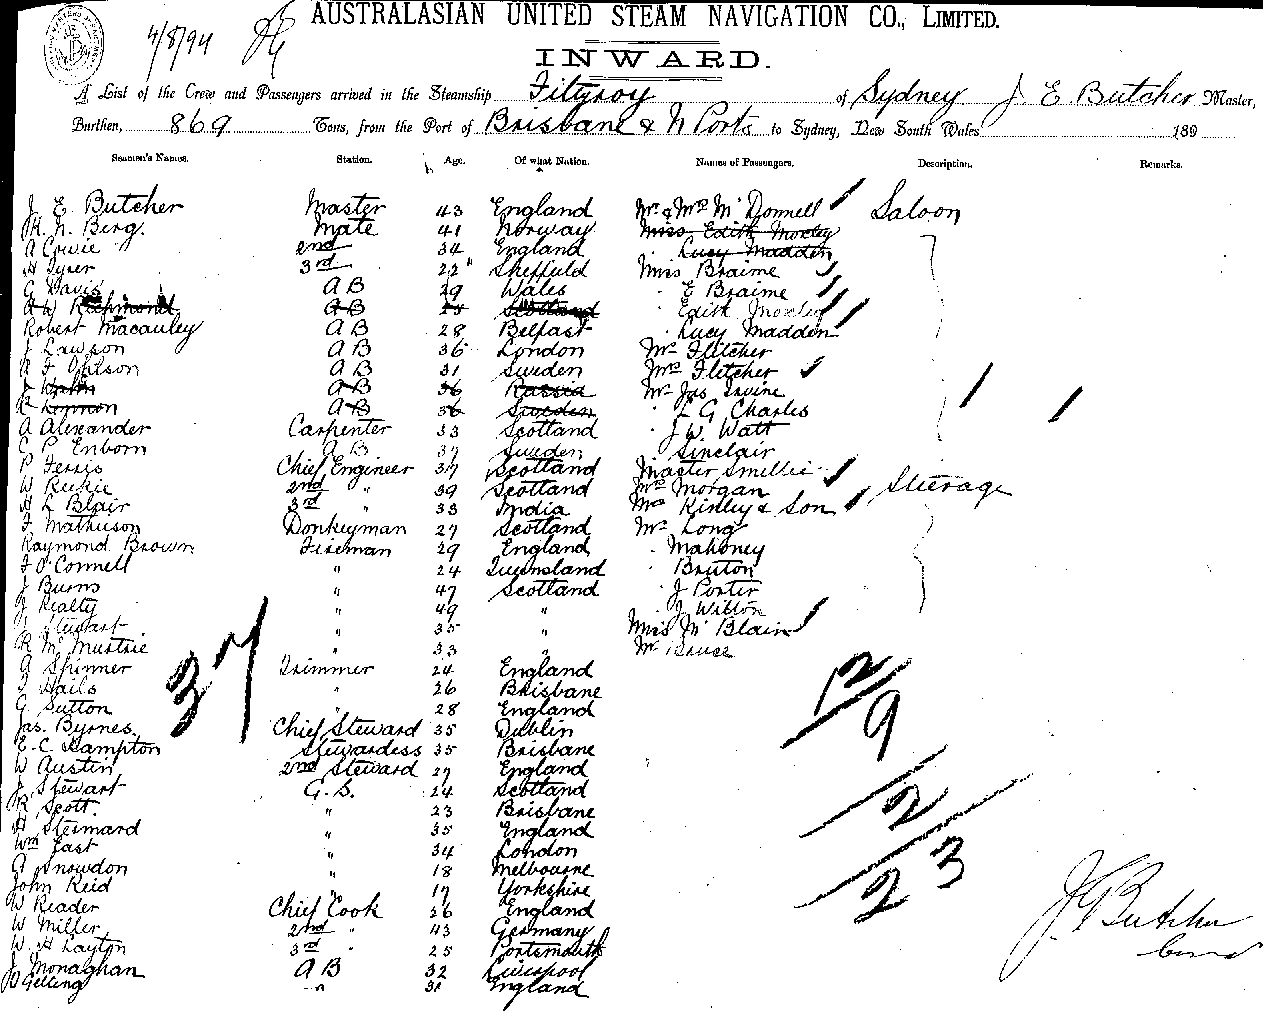 4/8/94
AUSTRALASIAN UNITED STEAM NAVIGATION CO., LIMITED.
INWARD.
A List of the Crew and Passengers arrived in the Steamship Fitzroy of Sydney J. E Butcher Master,
Burthen, 869 Tons, from the Port of Brisbane & N Ports to Sydney, New South Wales 189
Seamen's Names. Station. Age. Of what Nation. Names of Passengers. Description. Remarks.
J. E. Butcher Master 43 England Mr & Mrs McDonnell Saloon
R. N. Berg. Mate 41 Norway Miss Edith Moxley
A Cowie 2nd 34 England Lucy Madden
H Tyrer 3rd 22 Sheffield Miss Braime
G Davis AB 29 Wales E Braime
A W Richmond AB 25 Scotland Edith Moxley
Robert Macauley AB 28 Belfast Lucy Madden
J Lawson AB 36 London Mr Fletcher
AB 31 Sweden Mrs Fletcher
AB 36 Russia Mr Jas Irvine
AB 36 Sweden L G Charles
A Alexander Carpenter 33 Scotland J W. Watt
C P Enborn AB 37 Sweden Sinclair
P Ferris Chief Engineer 37 Scotland Master Smillie
W Reekie 2nd " 39 Scotland Mrs Morgan Steerage
H L Blair 3rd " 33 India Mrs Kinley & Son
F Mathieson Donkeyman 27 Scotland Mr Long
Raymond Brown Fireman 29 England Mahoney
F O'Connell " 24 Queensland Bruton
J Burns " 47 Scotland J Porter
J Kealty " 49 " J Wilton
J Stewart " 35 " Miss McBlain
R McMurtrie " 33 " Mr Bruce
A Skinner Trimmer 24 England
37
Hails " 26 Brisbane
G. Sutton " 28 England
Jas. Byrnes. Chief Steward 35 Dublin
E. C. Hampton Stewardess 35 Brisbane
W Austin 2nd Steward 27 England
J. Stewart G. S. 24 Scotland
R Scott. " 23 Brisbane
H " 35 England
Wm East " 34 London
A Snowdon " 18 Melbourne
John Reid " 17 Yorkshire
W Reader Chief Cook 26 England
W Miller 2nd " 43 Germany
W. H Layton 3rd " 25 Portsmouth
J. Monaghan AB 32 Liverpool
Gelling " 31 England
12/9
/2
/23
J E Butcher